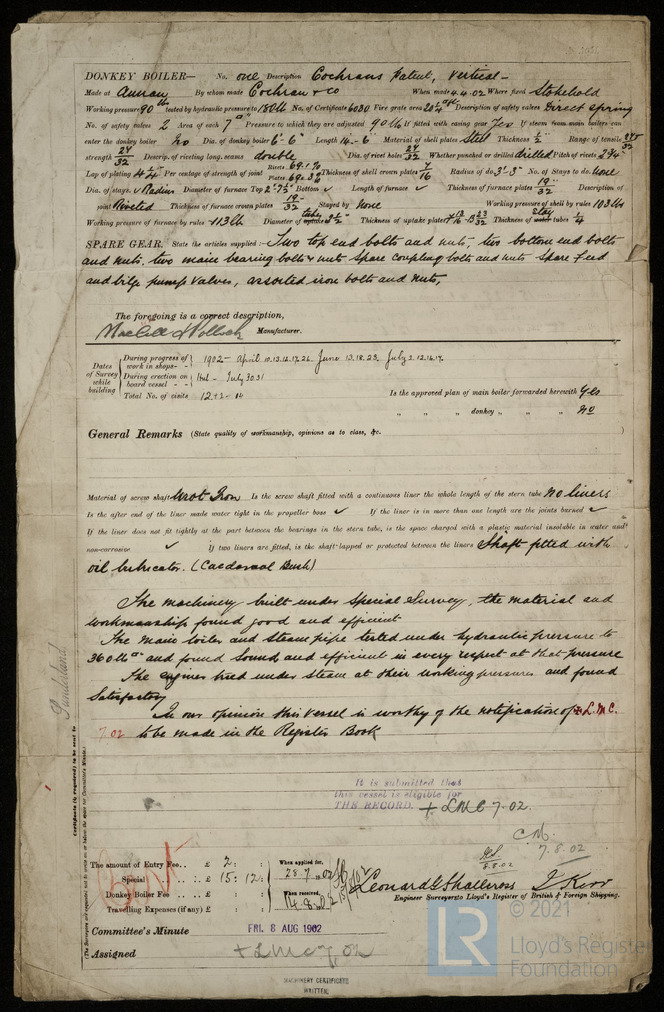 DONKEY BOILER— No. one Description Cochrans Patent, Vertical—
Made at Annan By whom made Cochran & Co When made 4.4.02 Where fixed Stokehold
Working pressure 90 lb tested by hydraulic pressure to 180 lb No. of Certificate 6030 Fire grate area 20 1/4 sq ft Description of safety valves Direct spring
No. of safety valves 2 Area of each 7 □" Pressure to which they are adjusted 90 lb If fitted with easing gear Yes If steam from main boilers can
enter the donkey boiler No Dia. of donkey boiler 6'-6" Length 14'-6" Material of shell plates Steel Thickness 1/2" Range of tensile
strength 27/32 Descrip. of riveting long. seams double Dia. of rivet holes 27/32 Whether punched or drilled drilled Pitch of rivets 2 3/4
Lap of plating 4 1/4 Per centage of strength of joint Rivets 69.1% Plates 69.3% Thickness of shell crown plates 7/16 Radius of do. 3'-3" No. of Stays to do. None
Dia. of stays. ✓ Radius Diameter of furnace Top Bottom ✓ Length of furnace ✓ Thickness of furnace plates 19/32 Description of
joint Riveted Thickness of furnace crown plates 19/32 Stayed by None Working pressure of shell by rules 103 lbs
Working pressure of furnace by rules 113 lb Diameter of uptake tubes 2 1/2" Thickness of uptake plates T 13/16 B 23/32 Thickness of stay tubes 1/4
SPARE GEAR. State the articles supplied:— Two top end bolts and nuts, two bottom end bolts
and nuts, two main bearing bolts & nuts Spare coupling bolts and nuts Spare Feed
and bilge pump valves, assorted iron bolts and nuts,
The foregoing is a correct description,
MacColl & Pollock Manufacturer.
Dates of Survey while building
During progress of work in shops - - 1902 - April 10.13.16.17.26. June 13.18.23. July 2.12.16.17.
During erection on board vessel - - Hul - July 30.31
Total No. of visits 12+2 = 14
Is the approved plan of main boiler forwarded herewith Yes
" " " donkey " " " No
General Remarks (State quality of workmanship, opinions as to class, &c.
Material of screw shaft Wrot Iron Is the screw shaft fitted with a continuous liner the whole length of the stern tube No liners
Is the after end of the liner made water tight in the propeller boss ✓ If the liner is in more than one length are the joints burned ✓
If the liner does not fit tightly at the part between the bearings in the stern tube, is the space charged with a plastic material insoluble in water and
non-corrosive ✓ If two liners are fitted, is the shaft lapped or protected between the liners Shaft fitted with
oil lubricator. (Bush)
The machinery built under Special Survey, the material and
workmanship found good and efficient
The main boiler and steam pipe tested under hydraulic pressure to
360 lb □" and found sound and efficient in every respect at that pressure
The engines tried under steam at their working pressures and found
Satisfactory
In our opinion this vessel is worthy of the notification of + L.M.C.
7.02 to be made in the Register Book
It is submitted that
this vessel is eligible for
THE RECORD. + LMC 7.02.
7.8.02
8.8.02
Sunderland
Certificate (if required) to be sent to
(The Surveyors are requested not to write on or below the space for Committee's Minute.)
The amount of Entry Fee.. £ 2 : :
Special .. .. £ 15 : 12 :
Donkey Boiler Fee .. .. £ : :
Travelling Expenses (if any) £ : :
When applied for,
28.7.02
When received,
14.8.02
Leonard G Shallcross J Kerr
Engineer Surveyors to Lloyd's Register of British & Foreign Shipping.
Committee's Minute FRI. 8 AUG 1902
Assigned + LMC 7 02
MACHINERY CERTIFICATE
WRITTEN
LR © 2021
Lloyd's Register
Foundation